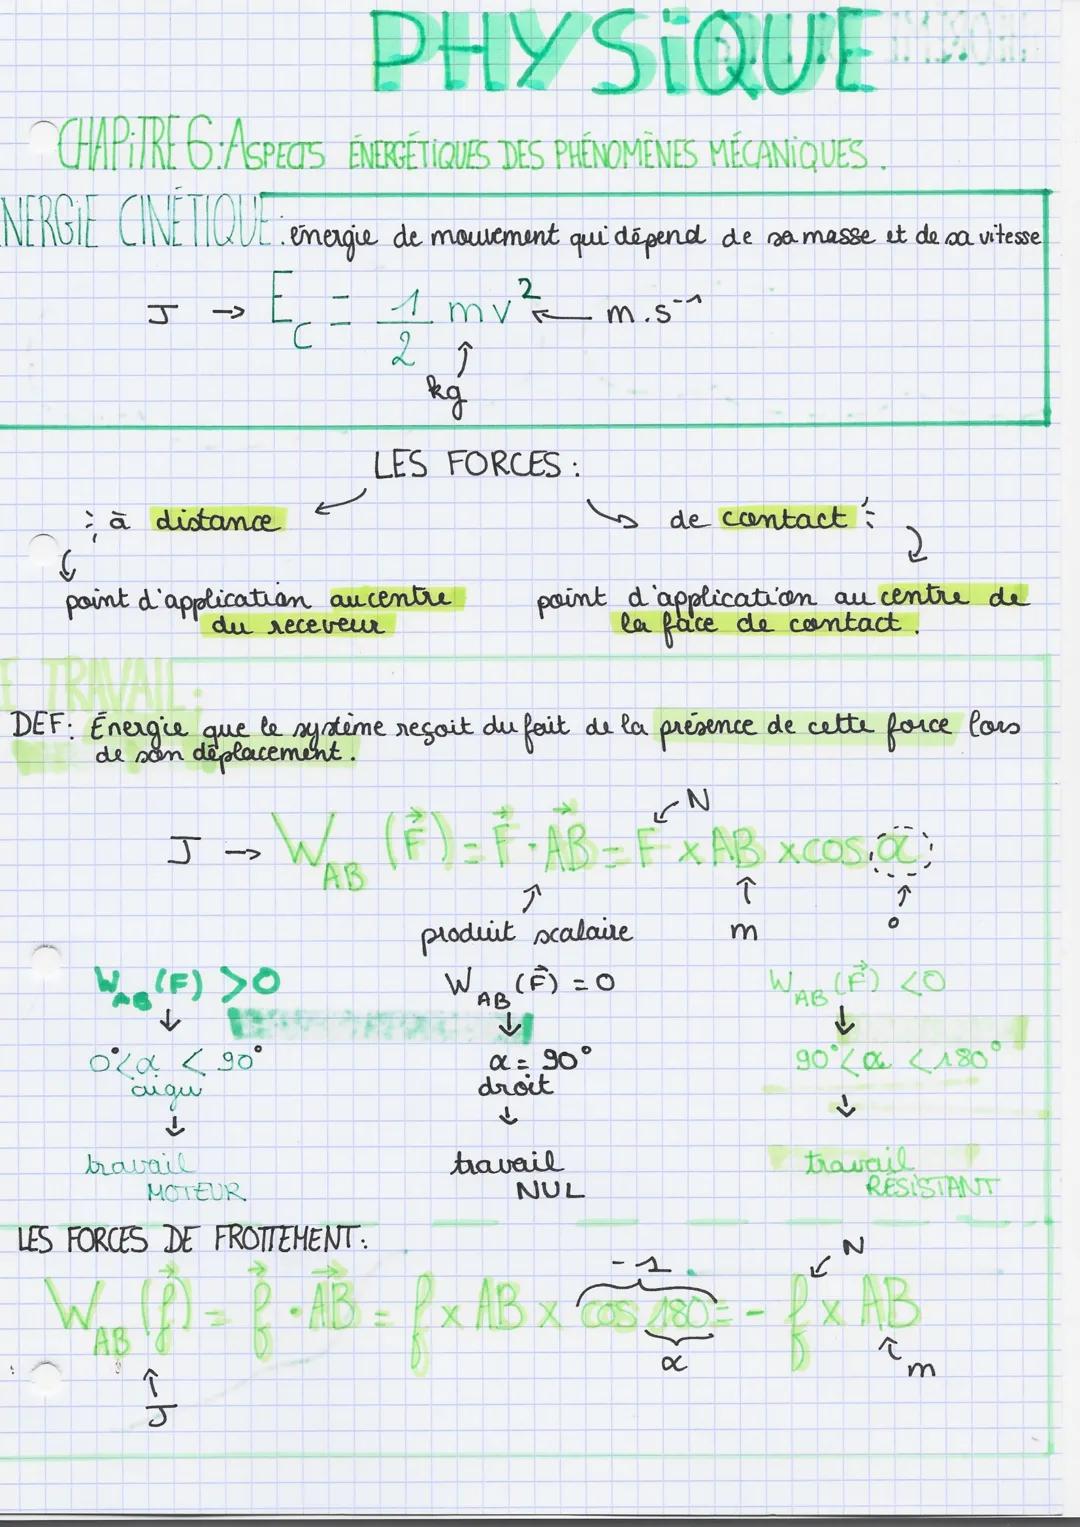 PHYSiQUE
CHAPiTRE 6: ASPECTS ÉNERGÉTiQUES DES PHÉNOMÈNES MÉCANiQUES.
NERGiE CiNÉTiQUE: énergie de mouvement qui dépend de sa masse et de sa vitesse
J → E_C = 1/2 mv² ← m.s⁻¹
↑
kg
LES FORCES:
à distance
de contact
point d'application au centre du receveur
point d'application au centre de la face de contact.
E TRAVAIL:
DEF: Énergie que le système reçoit du fait de la présence de cette force lors
de son déplacement.
N
J → W_AB (F⃗) = F⃗ · AB⃗ = F x AB x cos α
produit scalaire
m
°
W_AB (F) > 0
↓
0° < α < 90°
aigu
↓
travail
MOTEUR
W_AB (F⃗) = 0
↓
α = 90°
droit
↓
travail
NUL
W_AB (F⃗) < 0
↓
90° < α < 180°
↓
travail
RÉSiSTANT
LES FORCES DE FROTTEMENT:
-1
N
W_AB (f⃗) = f⃗ · AB⃗ = f x AB x cos 180 = - f x AB
α
m
↑
J